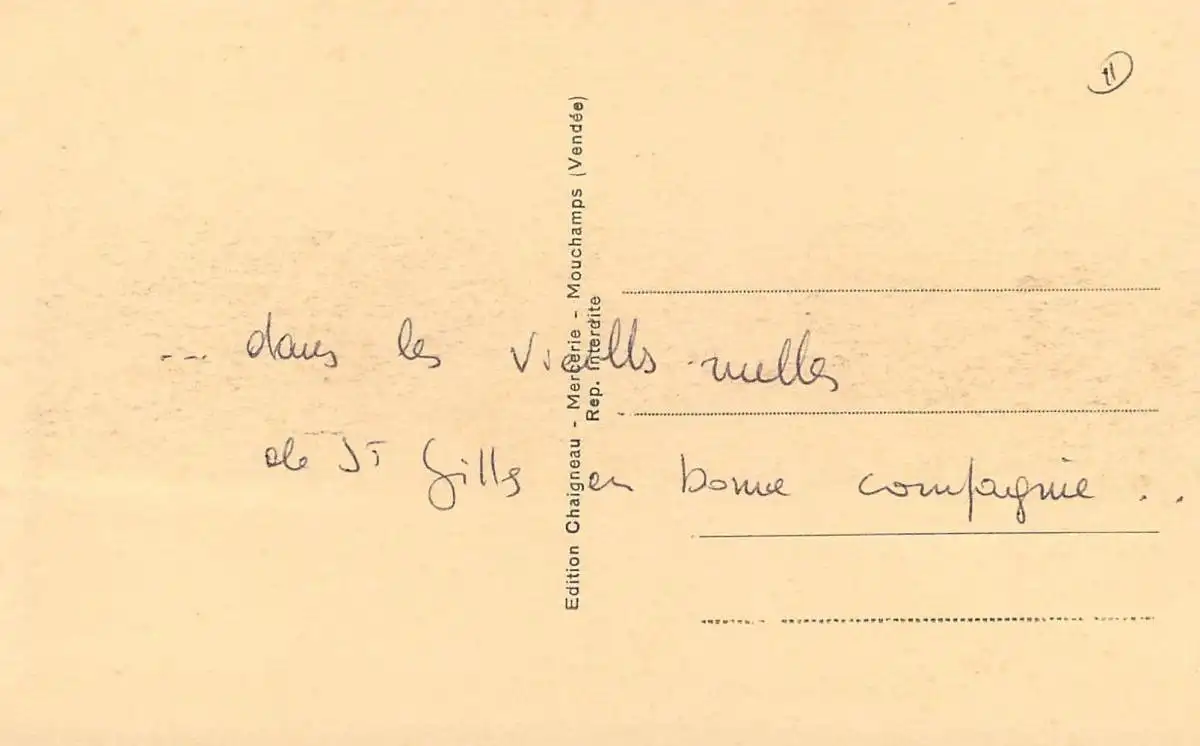 11
Edition Chaigneau - Mercerie - Mouchamps (Vendée)
Rep. Interdite
... dans les vieilles ruelles
de St Gilles en bonne compagnie ..